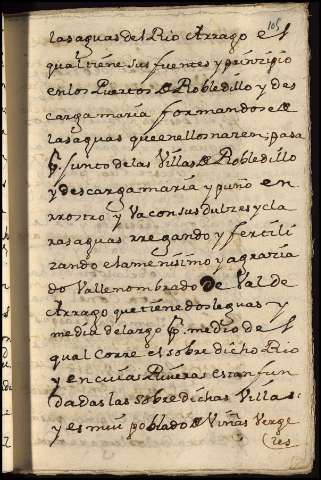 105
las aguas del Rio Arrago el
qual tiene sus fuentes y prinzipio
en los Puertos de Robledillo y des
carga maria formandose de
las aguas que en ellos nazen; pasa
p. Junto de las Villas de Robledillo
y descarga maria y puño en
rrostro y Va con sus dulzes y cla
ras aguas rregando y fertili
zando el amenisimo y agrazia
do Valle nombrado de Val de
Arrago que tiene dos leguas y
media de largo p. medio del
qual corre el sobre dicho Rio
y en cuia Riuera estan fun
dadas las sobre dichas Villas
y es mui poblado de Viñas Verge
les